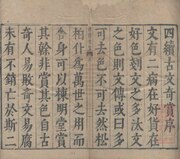 四續古文奇賞序
文有二病在好貨在
好色刻文之多汰文
之色則文傳或曰多
可去色不可去然松
柏什為萬世之用而
舍身可以棟明堂賞
其幹非賞其色自古
奇人易敗奇文易腐
未有不銷亡於斯二